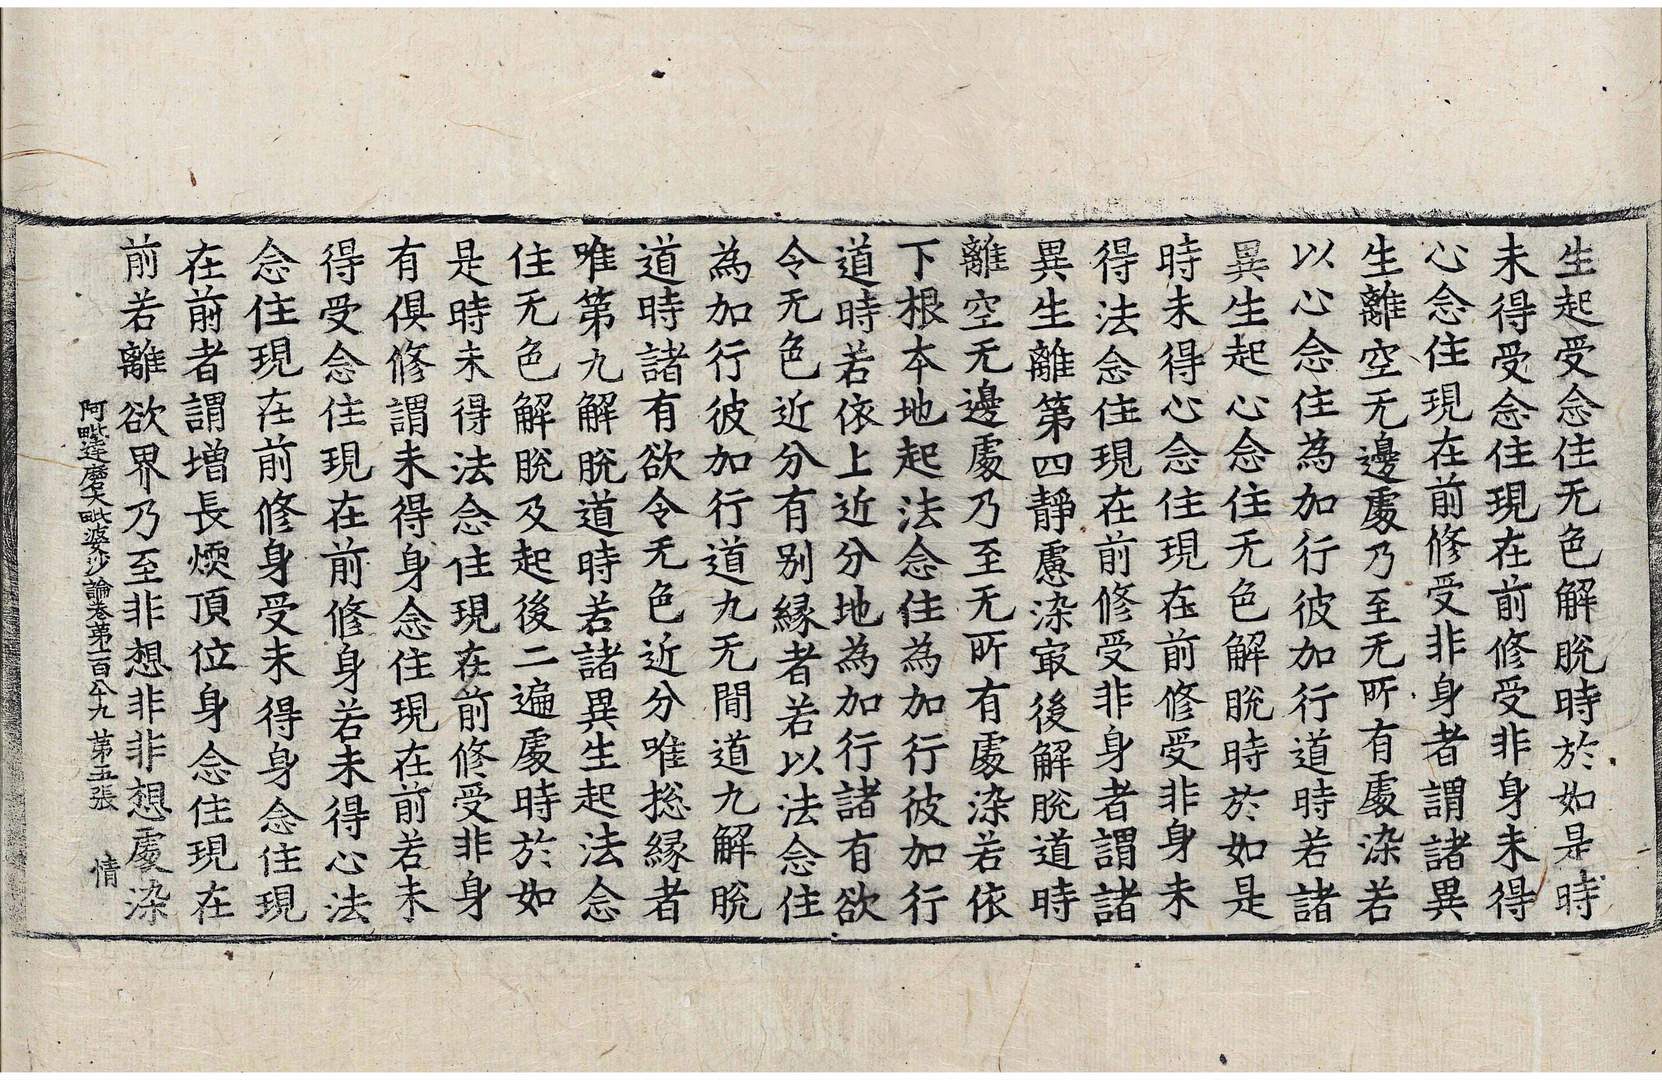 生起受念住无色解脫時於如是時
未得受念住現在前修受非身未得
心念住現在前修受非身者謂諸異
生離空无邊處乃至无所有處染若
以心念住為加行彼加行道時若諸
異生起心念住无色解脫時於如是
時未得心念住現在前修受非身未
得法念住現在前修受非身者謂諸
異生離第四靜慮染㝡後解脫道時
離空无邊處乃至无所有處染若依
下根本地起法念住為加行彼加行
道時若依上近分地為加行諸有欲
令无色近分有别緣者若以法念住
為加行彼加行道九无間道九解脫
道時諸有欲令无色近分唯捴緣者
唯第九解脫道時若諸異生起法念
住无色解脫及起後二遍處時於如
是時未得法念住現在前修受非身
有俱修謂未得身念住現在前若未
得受念住現在前修身若未得心法
念住現在前修身受未得身念住現
在前者謂增長煗頂位身念住現在
前若離欲界乃至非想非非想處染
阿毗達磨大毗婆沙論卷第一百八十九 第五張 情